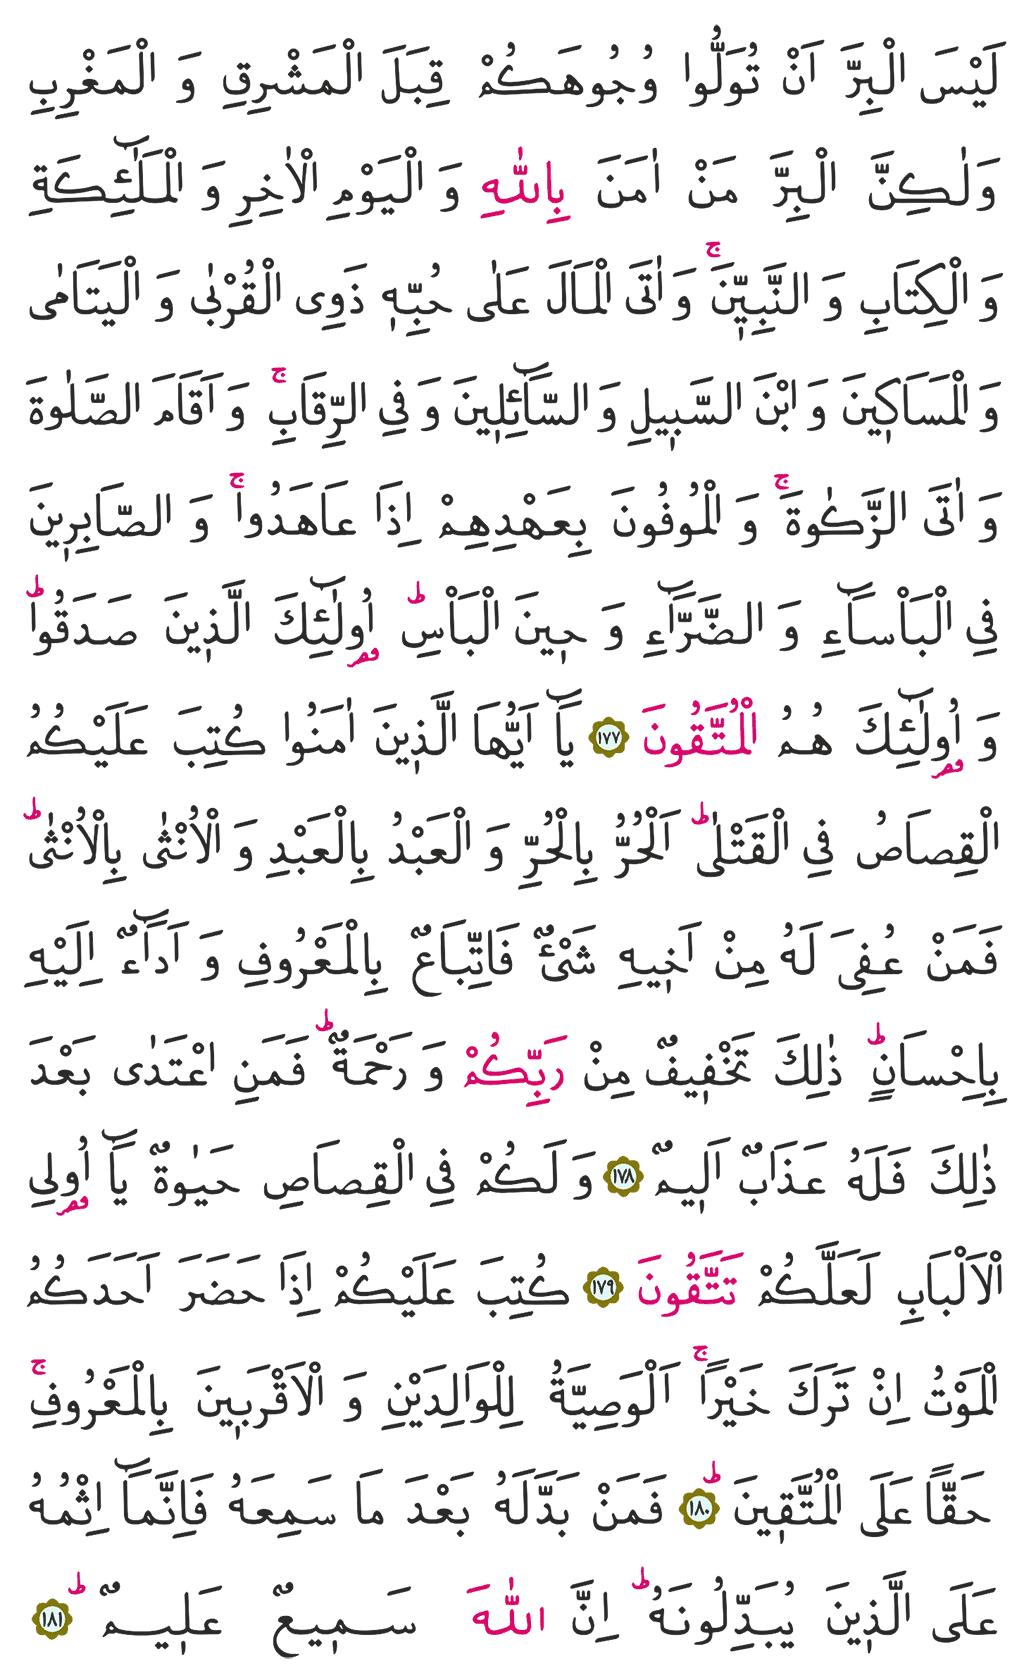 لَيْسَ الْبِرَّ اَنْ تُوَلُّوا وُجُوهَكُمْ قِبَلَ الْمَشْرِقِ وَ الْمَغْرِبِ
وَلٰكِنَّ الْبِرَّ مَنْ اٰمَنَ بِاللّٰهِ وَ الْيَوْمِ الْاٰخِرِ وَ الْمَلٰٓئِكَةِ
وَ الْكِتَابِ وَ النَّبِيّٖنَۚ وَ اٰتَى الْمَالَ عَلٰى حُبِّهٖ ذَوِى الْقُرْبٰى وَ الْيَتَامٰى
وَ الْمَسَاكٖينَ وَ ابْنَ السَّبٖيلِ وَ السَّٓائِلٖينَ وَ فِى الرِّقَابِۚ وَ اَقَامَ الصَّلٰوةَ
وَ اٰتَى الزَّكٰوةَۚ وَ الْمُوفُونَ بِعَهْدِهِمْ اِذَا عَاهَدُواۚ وَ الصَّابِرٖينَ
فِى الْبَاْسَٓاءِ وَ الضَّرَّٓاءِ وَ حٖينَ الْبَاْسِؕ اُولٰٓئِكَ الَّذٖينَ صَدَقُواؕ
وَ اُولٰٓئِكَ هُمُ الْمُتَّقُونَ ﴿١٧٧﴾ يَٓا اَيُّهَا الَّذٖينَ اٰمَنُوا كُتِبَ عَلَيْكُمُ
الْقِصَاصُ فِى الْقَتْلٰىؕ اَلْحُرُّ بِالْحُرِّ وَ الْعَبْدُ بِالْعَبْدِ وَ الْاُنْثٰى بِالْاُنْثٰىؕ
فَمَنْ عُفِىَ لَهُ مِنْ اَخٖيهِ شَيْئٌ فَاتِّبَاعٌ بِالْمَعْرُوفِ وَ اَدَٓاءٌ اِلَيْهِ
بِاِحْسَانٍؕ ذٰلِكَ تَخْفٖيفٌ مِنْ رَبِّكُمْ وَ رَحْمَةٌؕ فَمَنِ اعْتَدٰى بَعْدَ
ذٰلِكَ فَلَهُ عَذَابٌ اَلٖيمٌ ﴿١٧٨﴾ وَ لَكُمْ فِى الْقِصَاصِ حَيٰوةٌ يَٓا اُولِى
الْاَلْبَابِ لَعَلَّكُمْ تَتَّقُونَ ﴿١٧٩﴾ كُتِبَ عَلَيْكُمْ اِذَا حَضَرَ اَحَدَكُمُ
الْمَوْتُ اِنْ تَرَكَ خَيْرًاۚ اَلْوَصِيَّةُ لِلْوَالِدَيْنِ وَ الْاَقْرَبٖينَ بِالْمَعْرُوفِۚ
حَقًّا عَلَى الْمُتَّقٖينَؕ ﴿١٨٠﴾ فَمَنْ بَدَّلَهُ بَعْدَ مَا سَمِعَهُ فَاِنَّمَٓا اِثْمُهُ
عَلَى الَّذٖينَ يُبَدِّلُونَهُؕ اِنَّ اللّٰهَ سَمٖيعٌ عَلٖيمٌؕ ﴿١٨١﴾